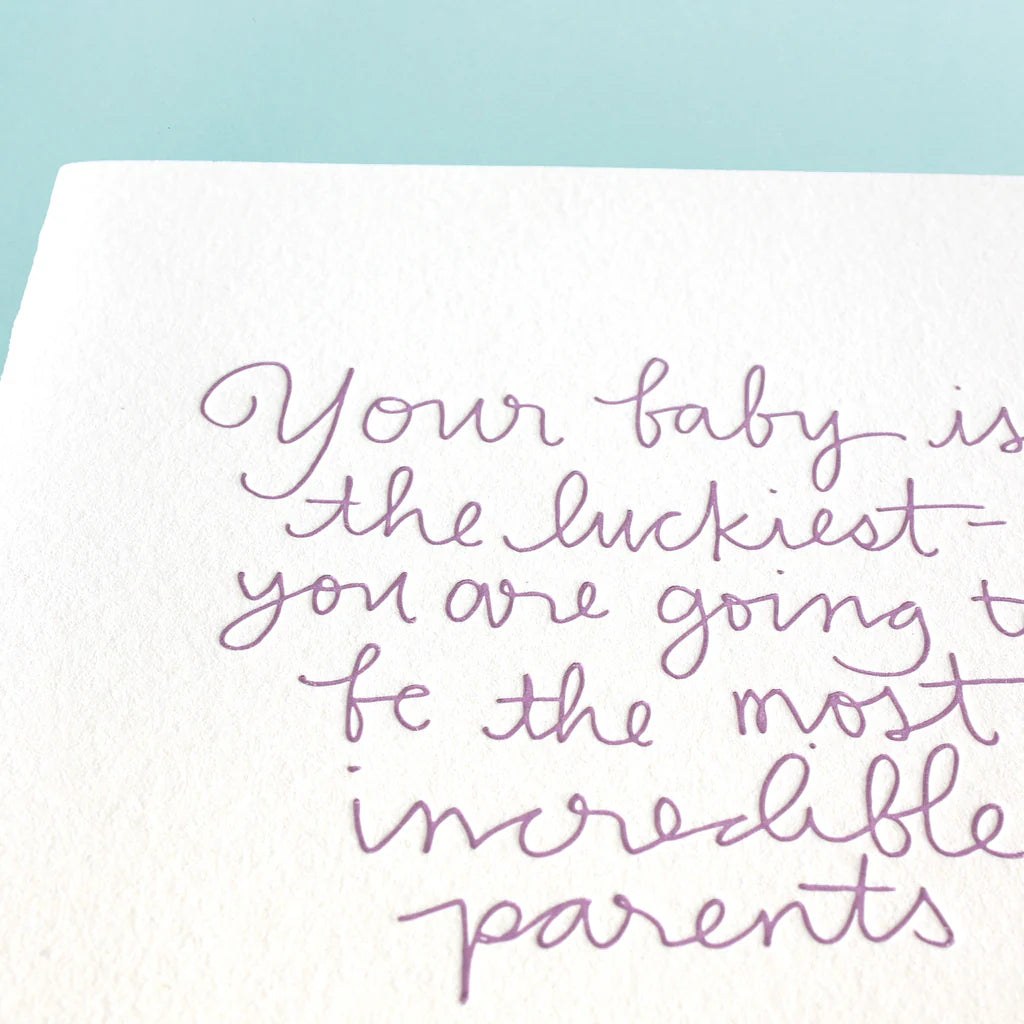 Your baby is
the luckiest -
you are going to
be the most
incredible
parents